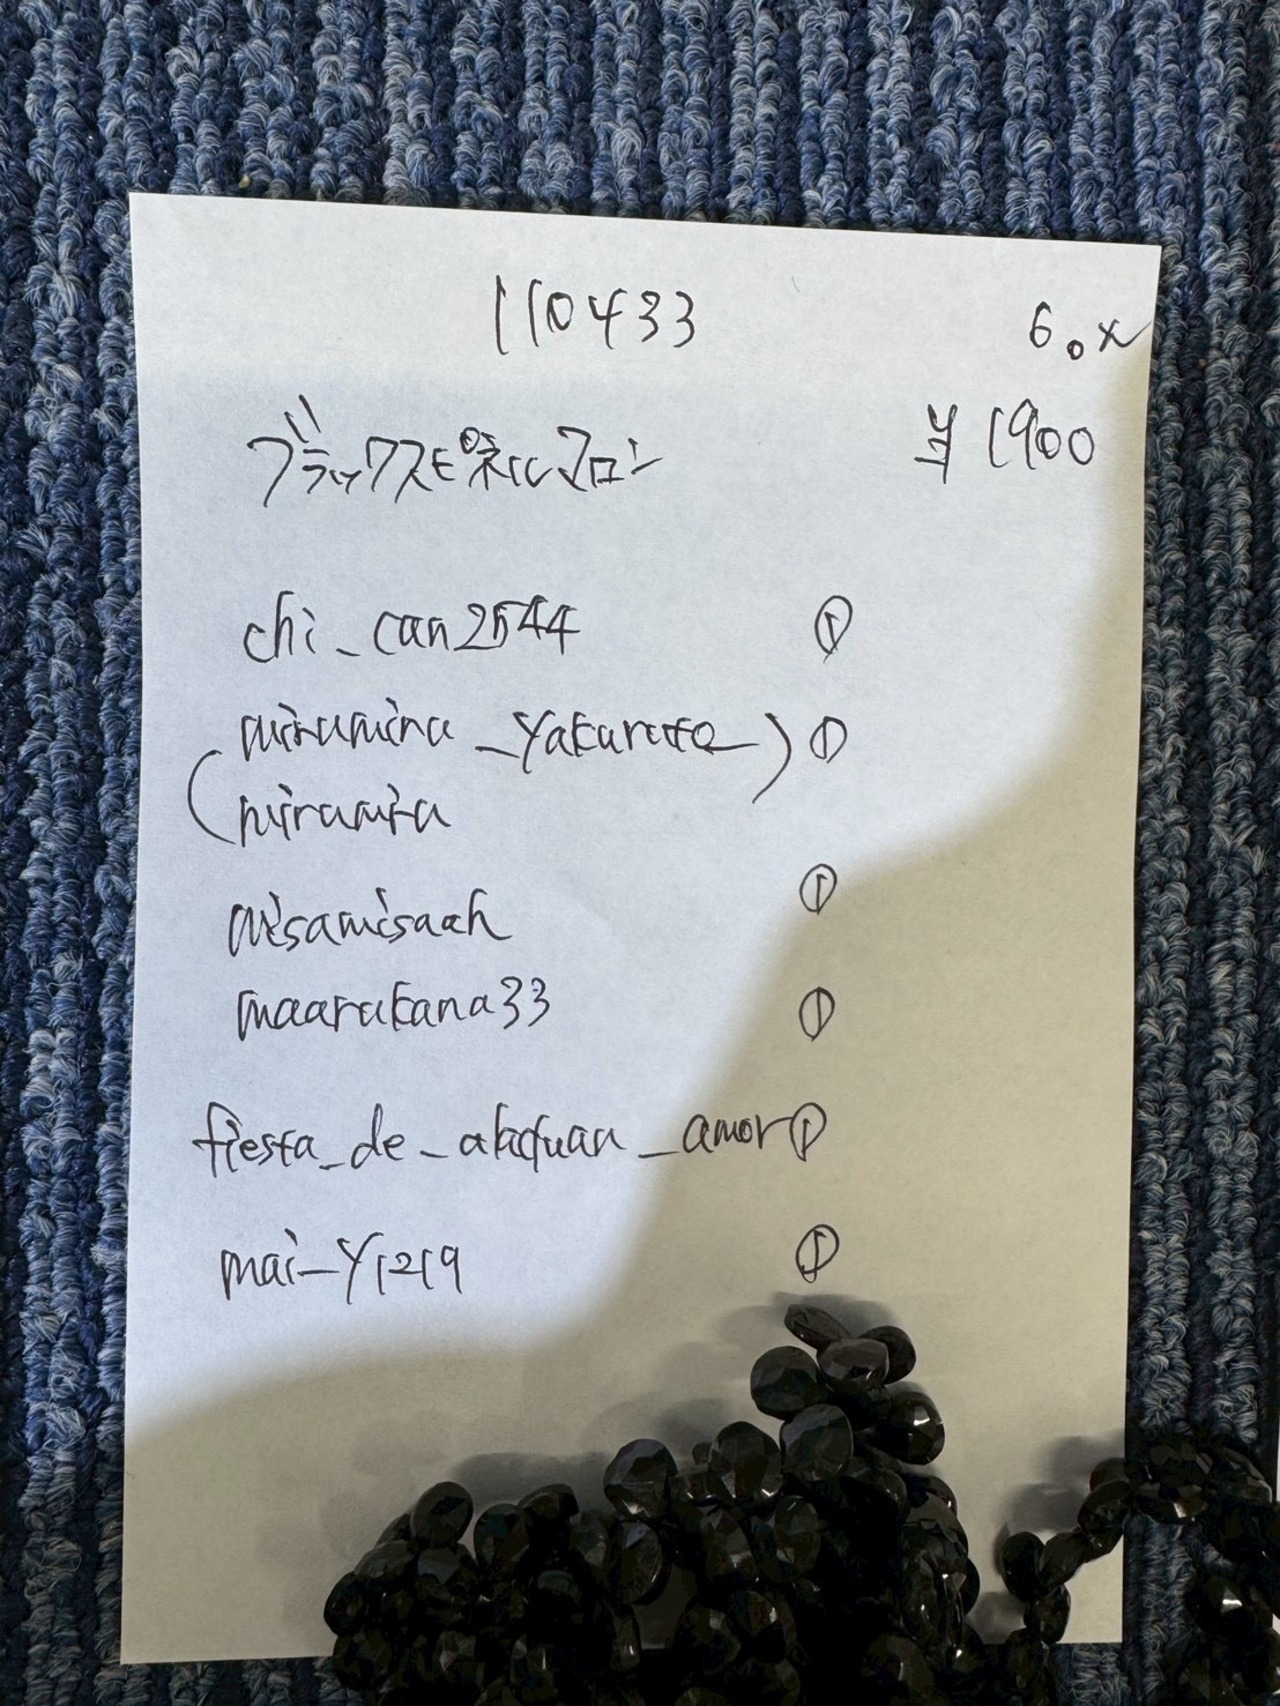 110433
6.x
ブラックスピネルマロン
¥1900
chi_can2544 ①
(mirumiru_yakuruto_) ①
mirumiru
misamisaah ①
maarukana33 ①
fiesta_de_ ①
mai_y1219 ①